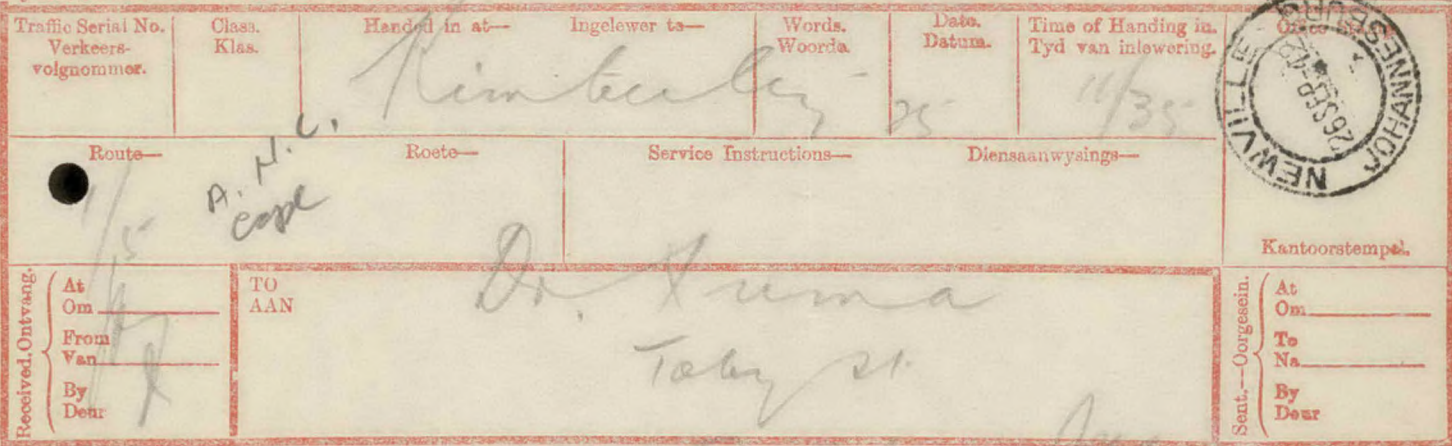 Traffic Serial No.
Verkeers-
volgnommer.
Class.
Klas.
Handed in at— Ingelewer te—
Kimberley
Words.
Woorde.
25
Date.
Datum.
Time of Handing in.
Tyd van inlewering.
11/35
NEWVILLE JOHANNESBURG
26 SEP 42
Kantoorstempel.
Route— Roete—
A. N. C.
Cape
Service Instructions— Diensaanwysings—
Received. Ontvang.
At
Om
From
Van
By
Deur
TO
AAN
Dr. Xuma
Toby St.
Sent.—Oorgesein.
At
Om
To
Na
By
Deur